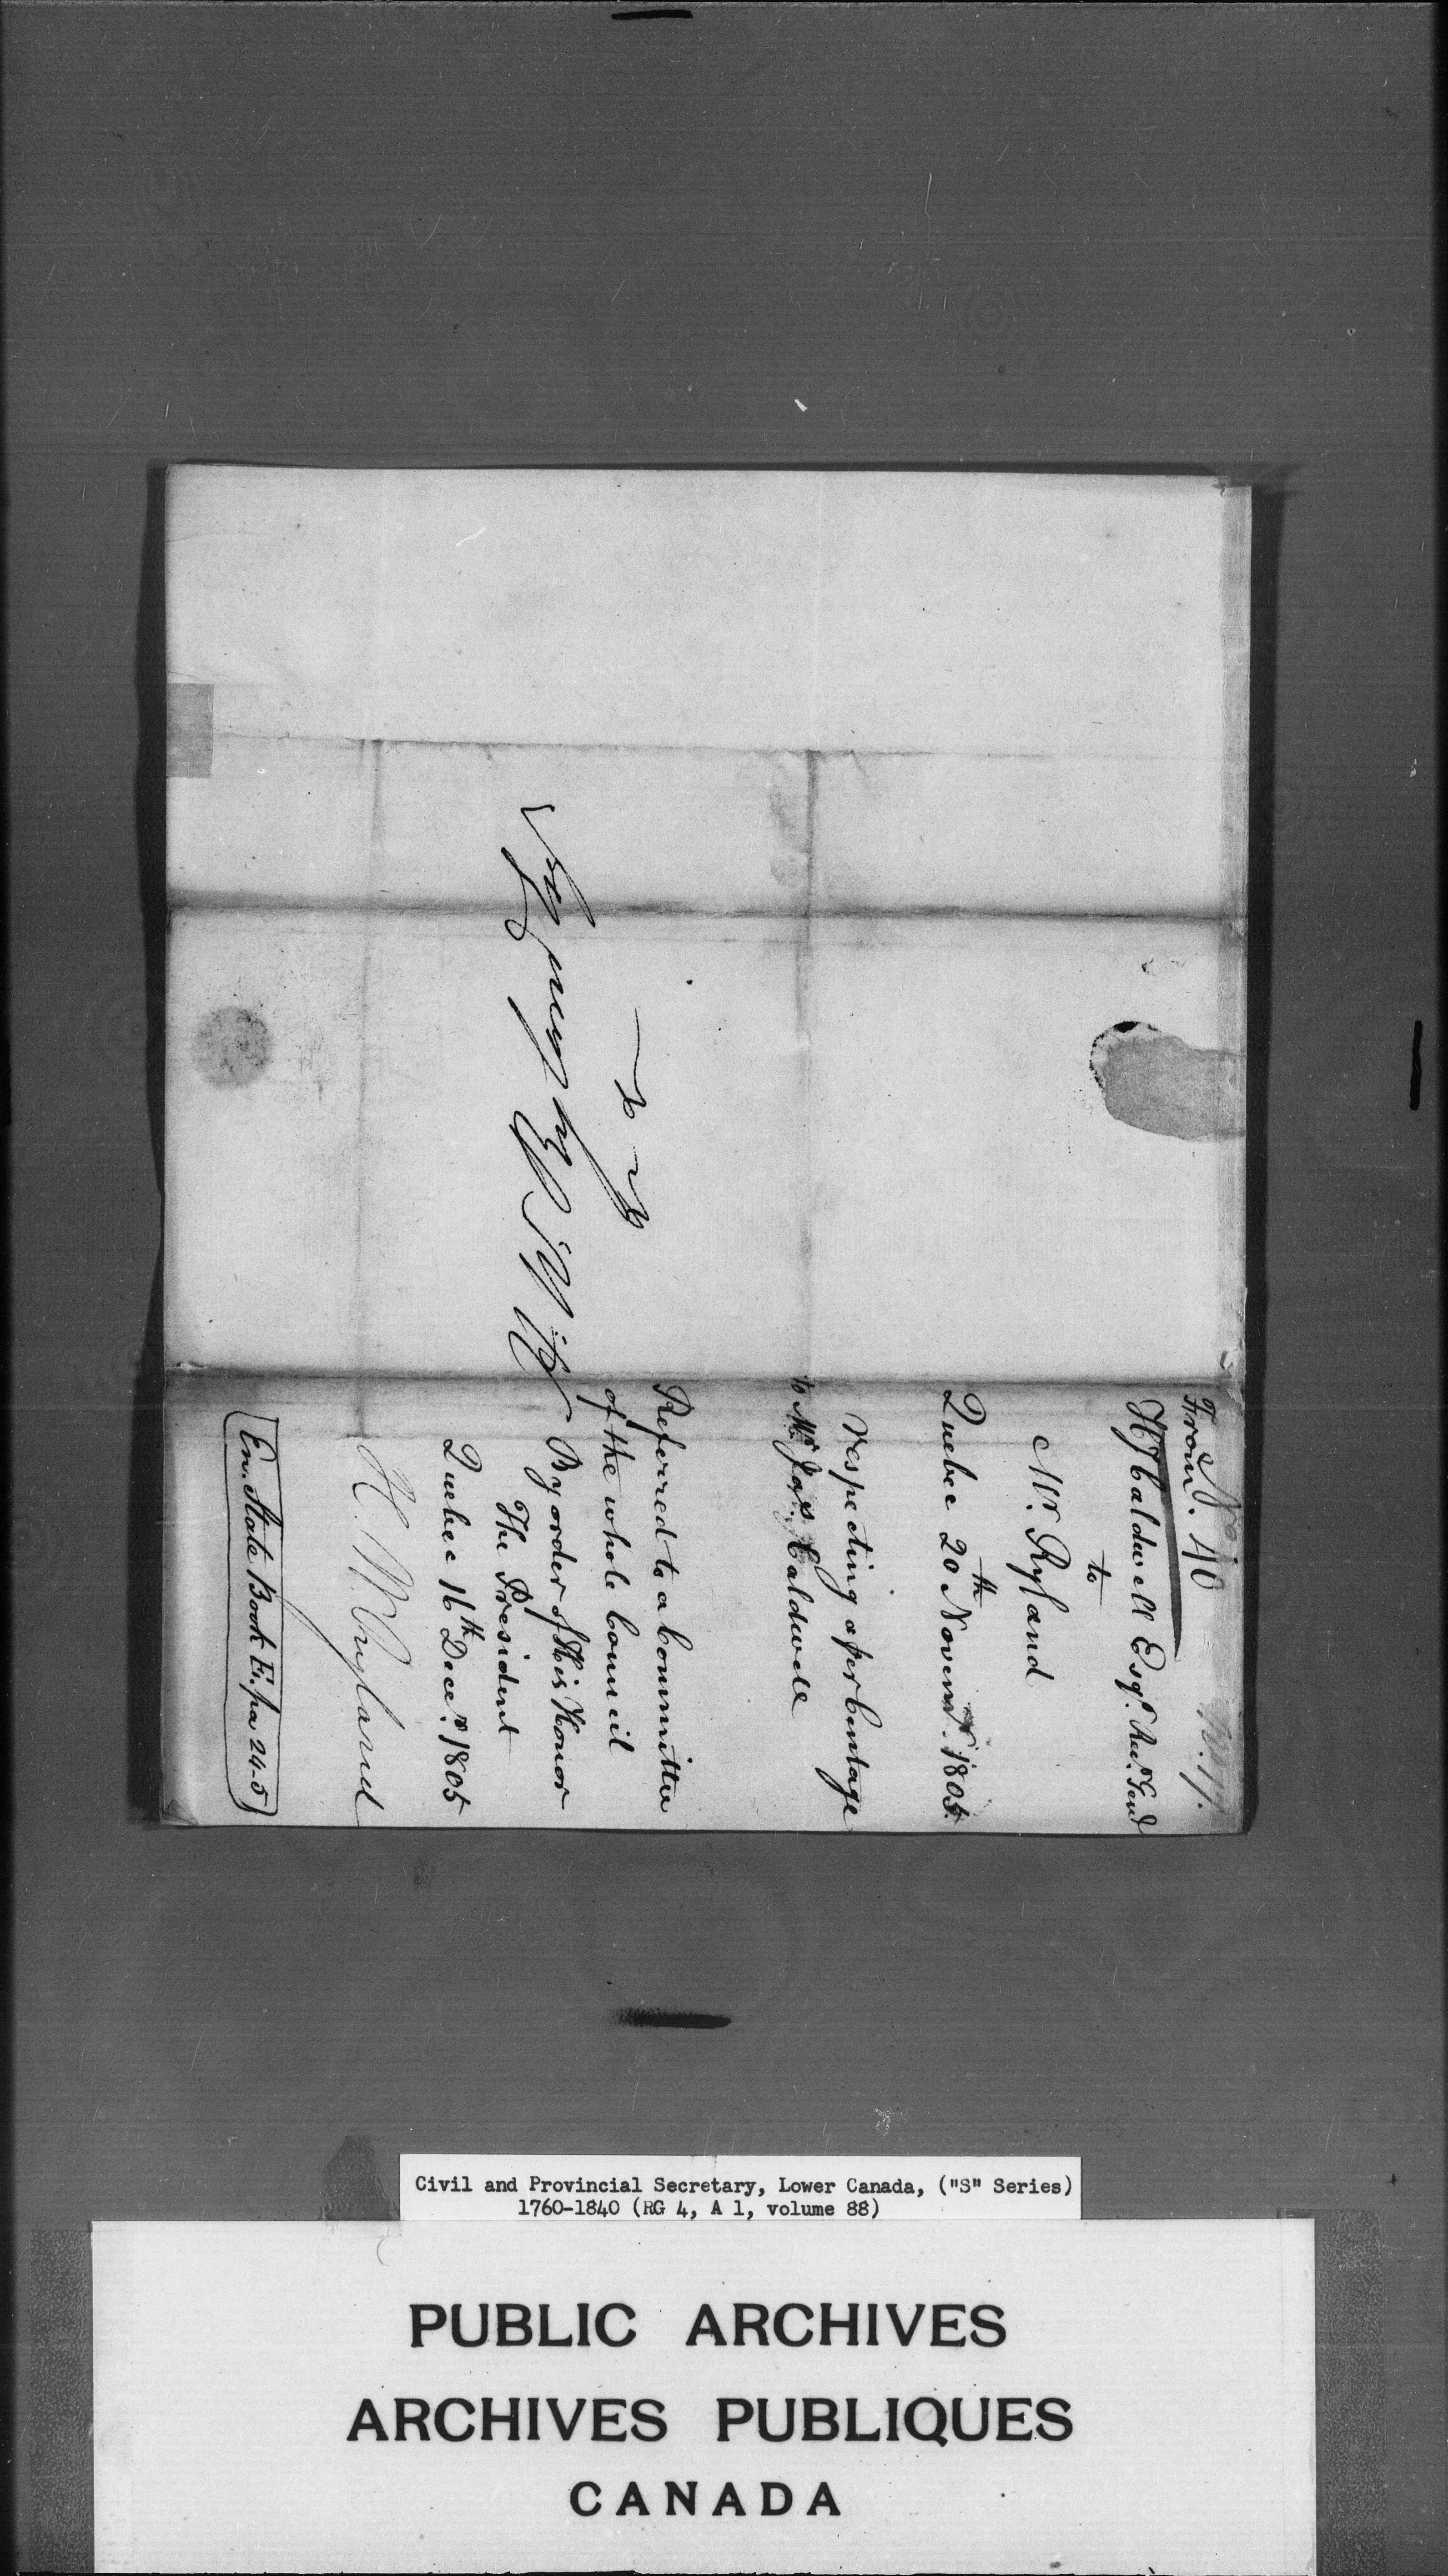 No. 40
From
H Caldwell Esqr. Recr. Genl
to
Mr. Ryland
Quebec 20th Novemr. 1805.
respecting a per Centage
to Mr. Jas. Caldwell
Referred to a Committee
of the whole Council
By order of His Honor
The President
Quebec 16th Decer. 1805
H. W. Ryland
Ent. State Book E. pa 245
H. W. Ryland Esqr
&c &c
Civil and Provincial Secretary, Lower Canada, ("S" Series)
1760-1840 (RG 4, A 1, volume 88)
PUBLIC ARCHIVES
ARCHIVES PUBLIQUES
CANADA